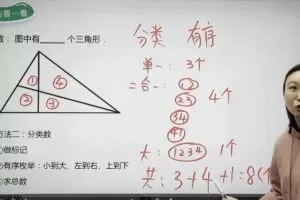 看一看
数：图中有____个三角形.
① ④
② ③
方法二：分类数
①做标记
②有序枚举：小到大、左到右、上到下
③求总数
分类 有序
单一：3个
二合一：①②
②③ 4个
③④
④①
大：①②③④ 1个
共：3+4+1=8(个